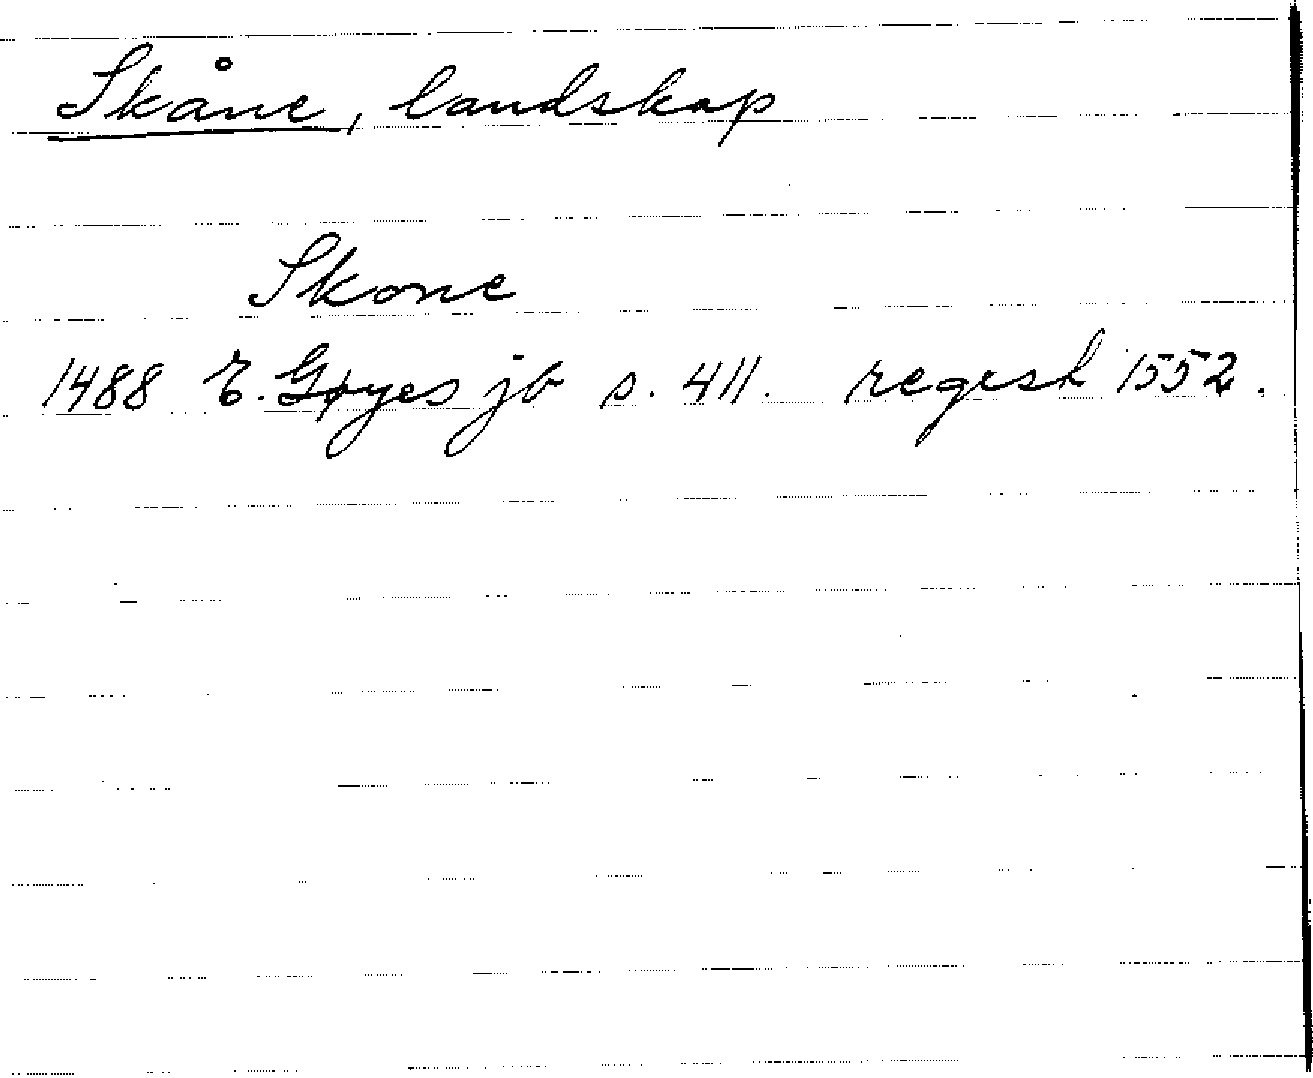 Skåne, landskap
Skone
1488 E. Gøyes jb s. 411. regest 1552.